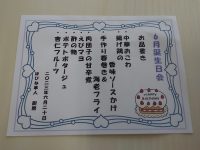 ６月誕生日会
お品書き
中華おこわ
揚げ鶏の香味ソースかけ
手作り春巻き＆海老フライ
肉団子の甘辛煮
えびマヨ
酢の物
ポテトポタージュ
杏仁フルーツ
二〇二三年六月二十日